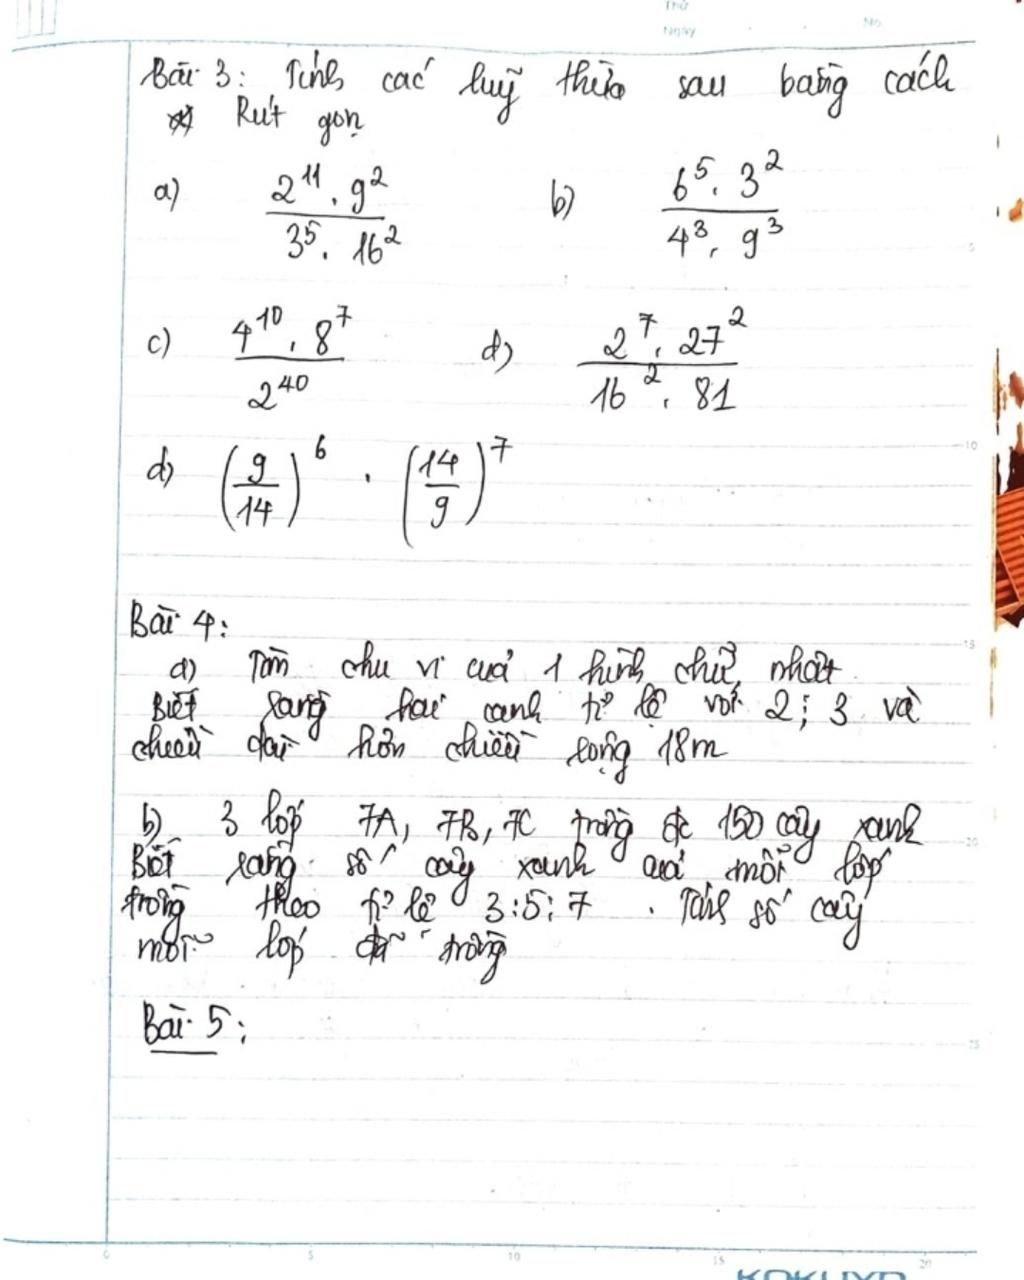 Thứ
Ngày . . No.
Bài 3: Tính các luỹ thừa sau bằng cách
Rút gọn
a) \frac{2^{11} . 9^2}{3^5 . 16^2} b) \frac{6^5 . 3^2}{4^3 . 9^3}
c) \frac{4^{10} . 8^7}{2^{40}} d) \frac{2^7 . 27^2}{16^2 . 81}
d) (\frac{9}{14})^6 . (\frac{14}{9})^7
Bài 4:
a) Tìm chu vi của 1 hình chữ nhật
Biết rằng hai cạnh tỉ lệ với 2; 3 và
chiều dài hơn chiều rộng 18m
b) 3 lớp 7A, 7B, 7C trồng đc 150 cây xanh
Biết rằng số cây xanh của mỗi lớp
trồng theo tỉ lệ 3:5:7 . Tính số cây
mỗi lớp đã trồng
Bài 5:
5
10
15
20
25
0 5 10 15 20
KOKUYO